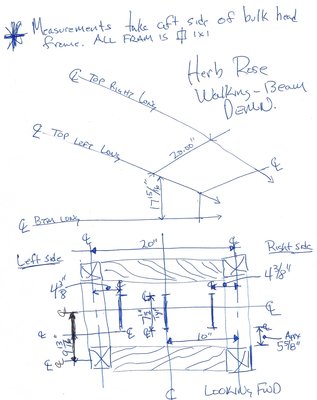 * Measurements take aft side of bulk head
frame. ALL FRAM IS □ 1x1
Herb Rose
Walking-Beam
DEMN.
℄ TOP RIGHT LONG
20.00"
℄ TOP LEFT LONG
℄
℄ BTM LONG
℄ 20" ℄
Left side
Right side
4 3/8"
4 3/8"
℄
10"
℄
Aprx
5 5/8"
℄
℄
LOOKING FWD